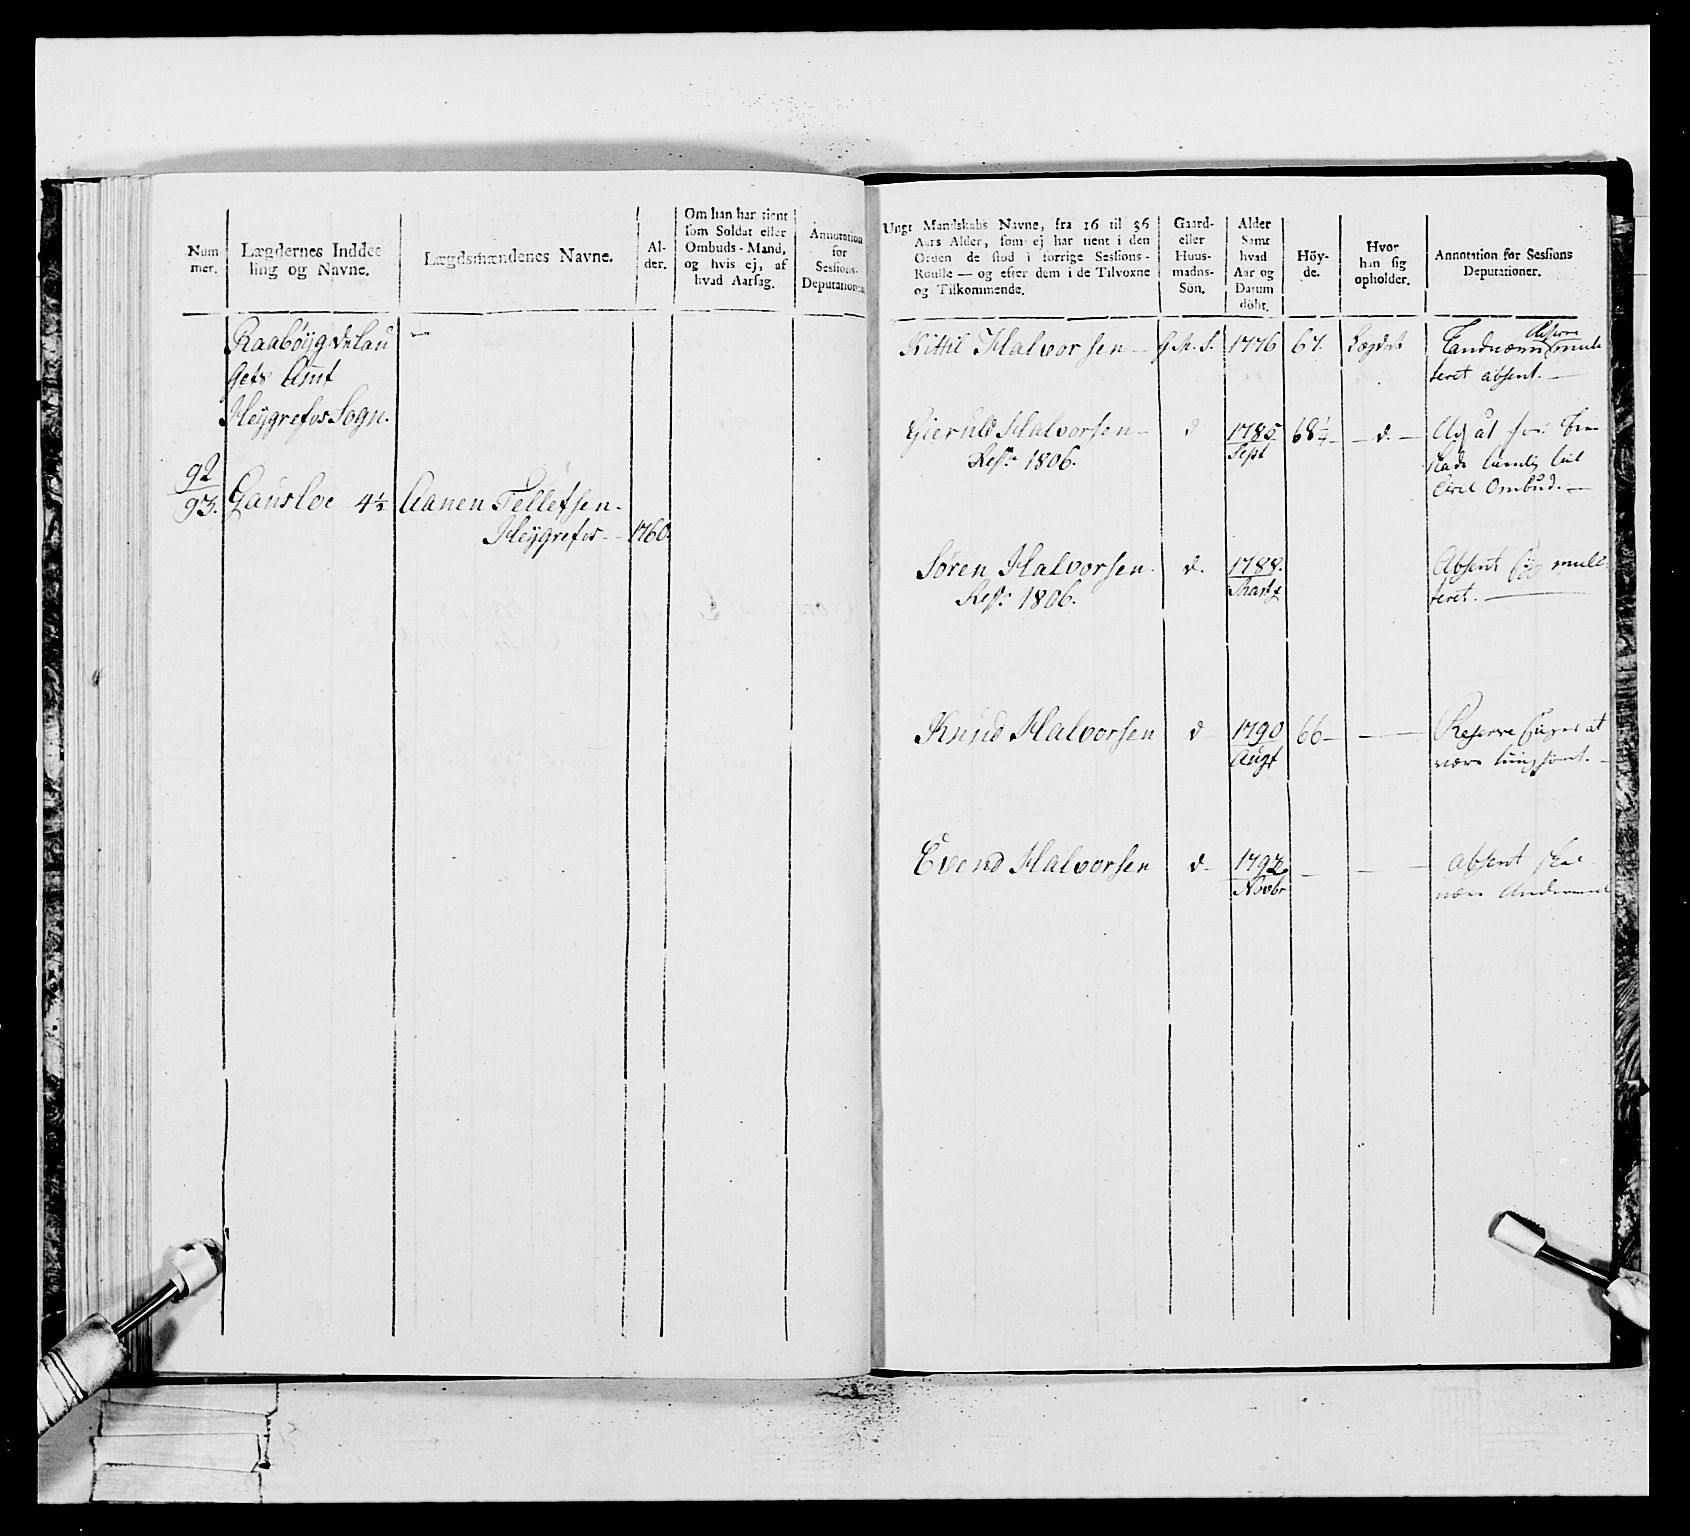 Num
mer.
Lægdernes Inddee
ling og Navne.
Lægdsmændenes Navne.
Al-
der.
Om han har tient
som Soldat eller
Ombuds-Mand,
og hvis ej, af
hvad Aarsag.
Annotation
for
Sessions-
Deputationen
Raabøygdelau
gets Amt
Heygrefos Sogn.
92
93. Gausloe 4½ Aanen Tellefsen.
Heygrefos 1760.
Ungt Mandskabs Navne, fra 16 til 36
Aars Alder, som ej har tient i den
Orden de stod i forrige Sessions-
Roulle — og efter dem i de Tilvoxne
og Tilkommende.
Gaard-
eller
Huus-
madns-
Sön.
Alder
Samt
hvad
Aar og
Datum
döbt.
Höy-
de.
Hvor
han sig
opholder.
Annotation for Sessions
Deputationer.
Kittil Halvorsen — G.M.S. 1776 67. Lægdet
absent. —
Gieruld Halvorsen — d 1785 68¼ — d. —
Resv. 1806. Sept
Civil Ombud. —
Søren Halvorsen. d. 1788. Absent mulc
Resv. 1806. Martz teret. —
Knud Halvorsen d 1790 66 — — Reserve at
Augt være
Evend Halvorsen d 1792 — — absent skal
Novbr være